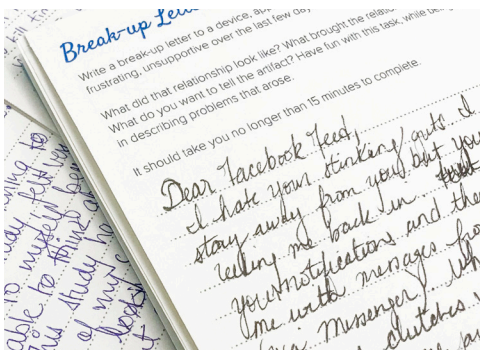 Break-up Lette
Write a break-up letter to a device, app
frustrating, unsupportive over the last few day
What did that relationship look like? What brought the relatio
What do you want to tell the artifact? Have fun with this task, while
in describing problems that arose.
It should take you no longer than 15 minutes to complete.
Dear Facebook Feed,
I hate your stinking guts. I
stay away from you but you
reeling me back in
your notifications and the
me with messages fro
via Messenger Wh
clutches
to
day felt
to myself
able to think
this study he
of my
books